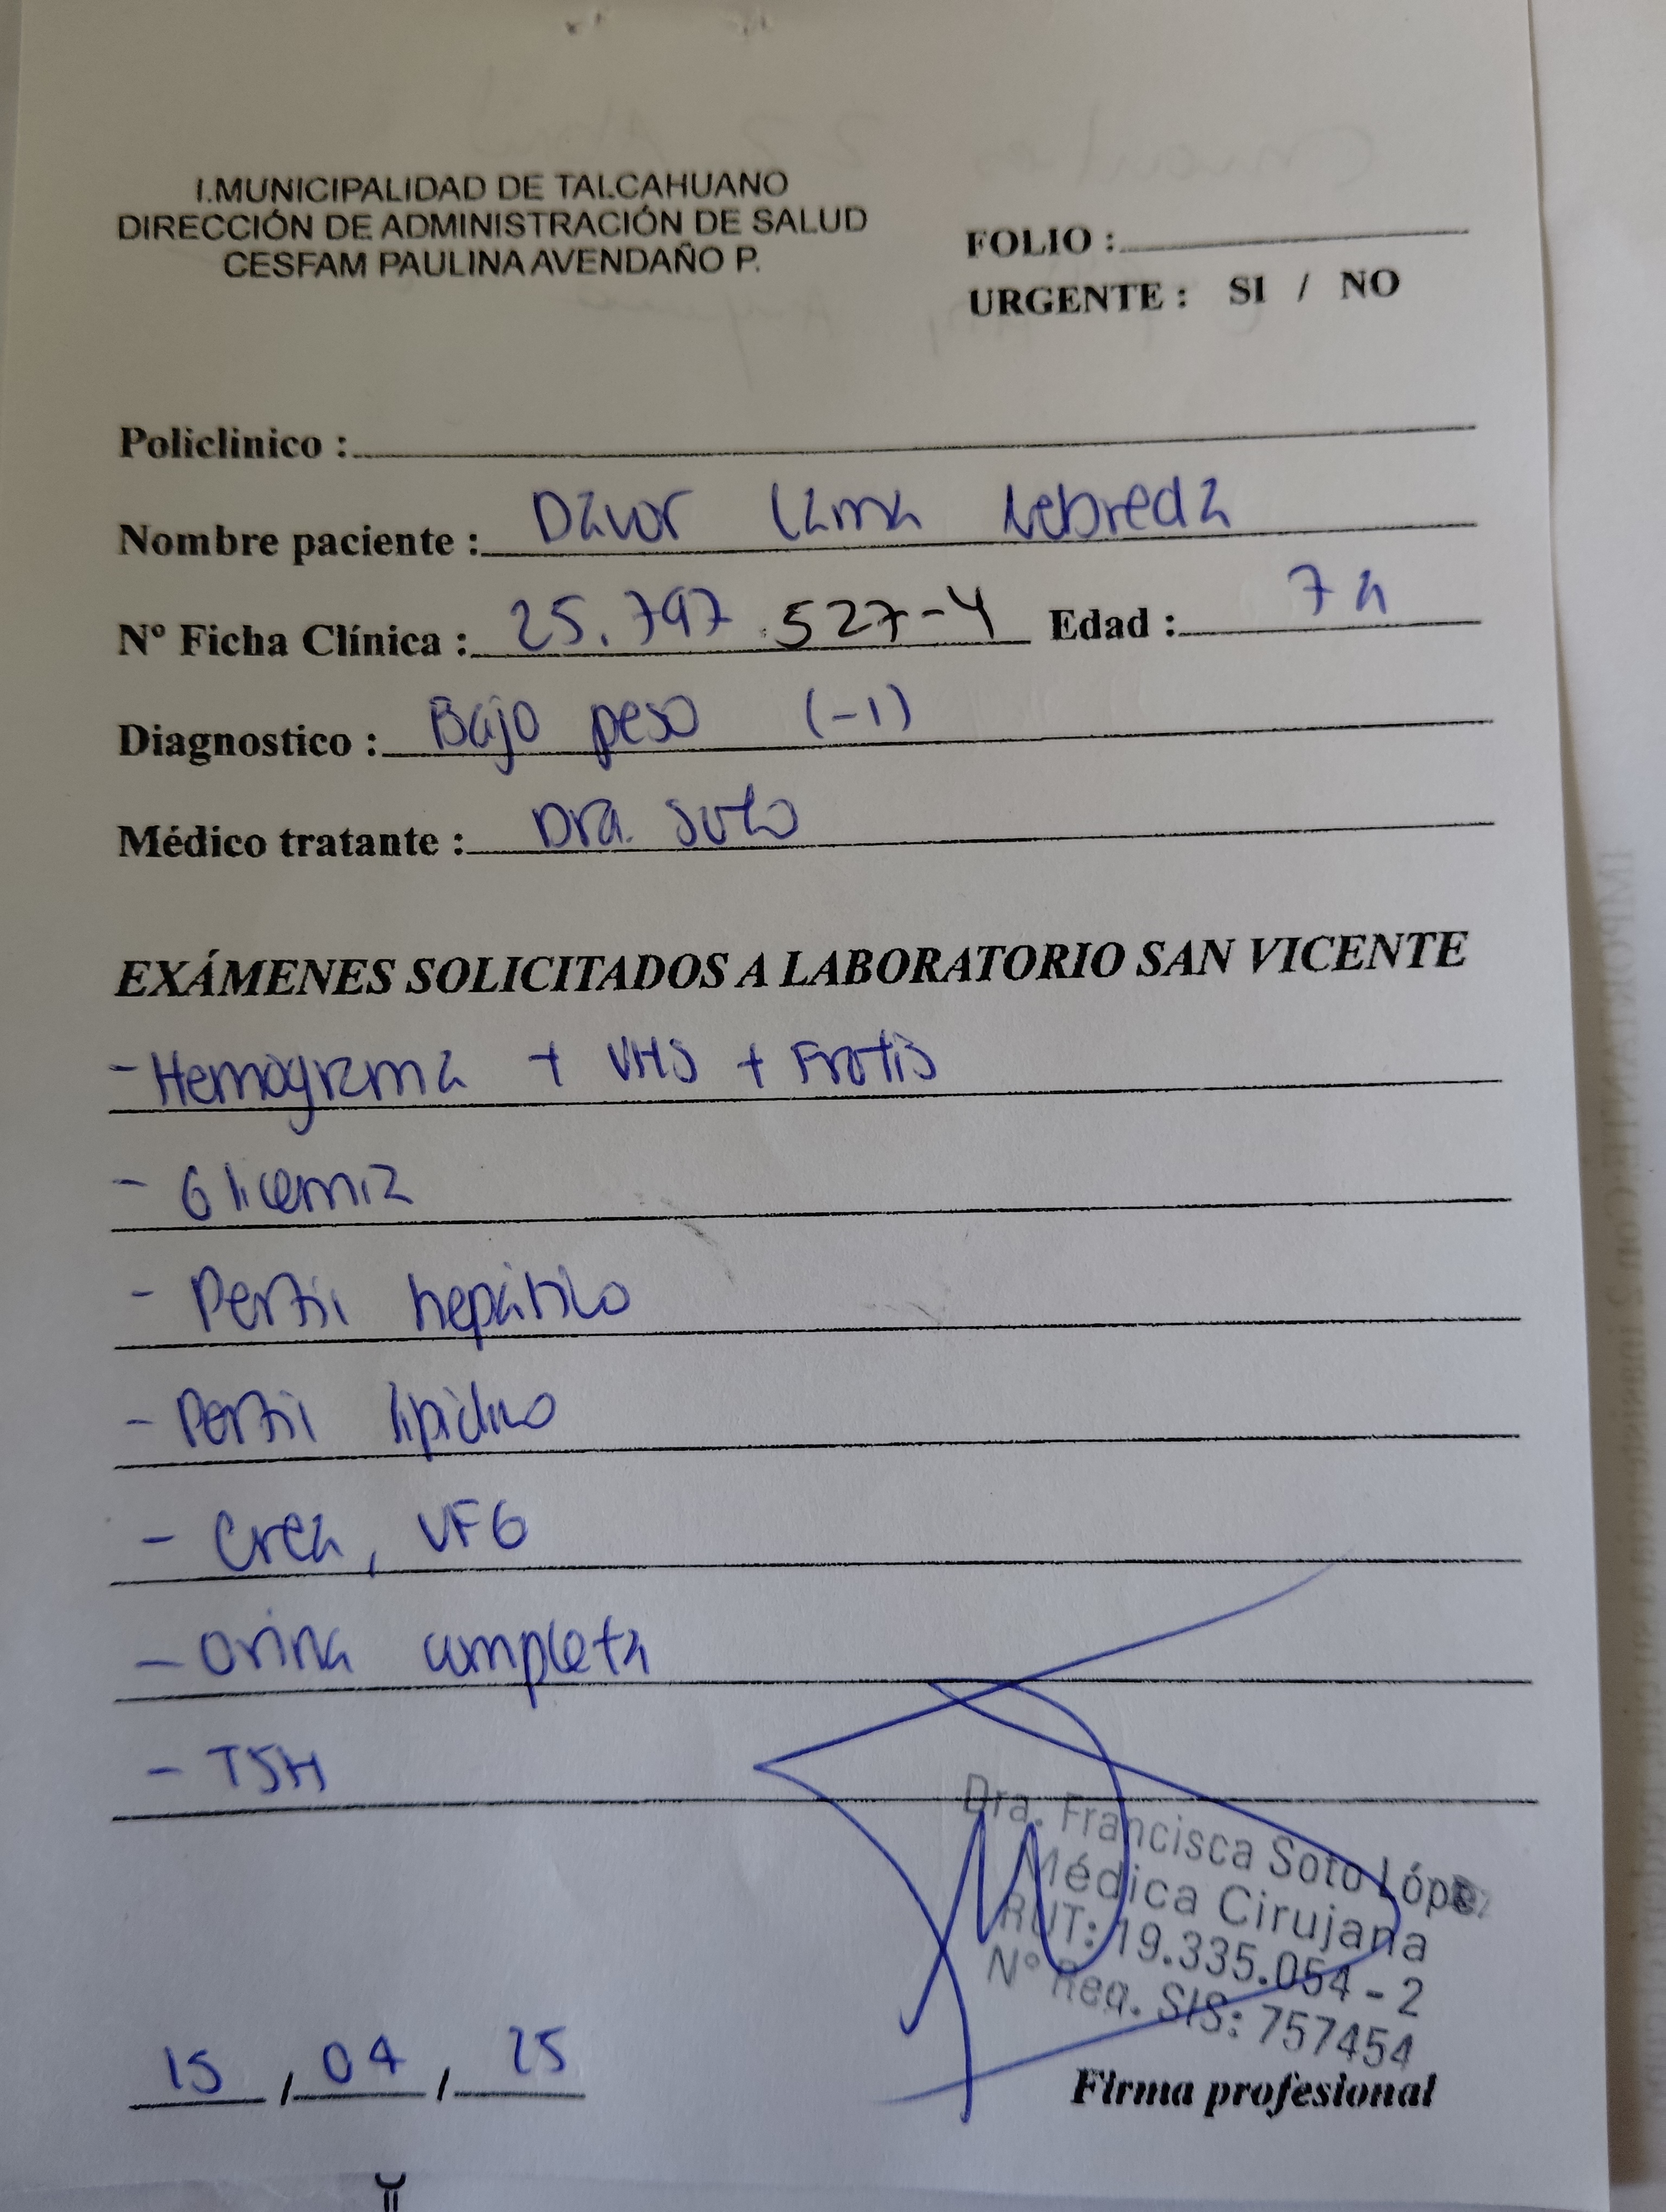 I.MUNICIPALIDAD DE TALCAHUANO
DIRECCIÓN DE ADMINISTRACIÓN DE SALUD
CESFAM PAULINA AVENDAÑO P.
FOLIO :
URGENTE : SI / NO
Policlinico :
Nombre paciente : Davor Lama Nebreda
Nº Ficha Clínica : 25.797.527-4 Edad : 7 a
Diagnostico : Bajo peso (-1)
Médico tratante : Dra. Soto
EXÁMENES SOLICITADOS A LABORATORIO SAN VICENTE
- Hemograma + VHS + Frotis
- Glicemia
- Perfil hepático
- Perfil lipidico
- Crea, VFG
- Orina completa
- TSH
Dra. Francisca Soto López
Médica Cirujana
RUT: 19.335.054-2
Nº Reg. SIS: 757454
15 / 04 / 25
Firma profesional